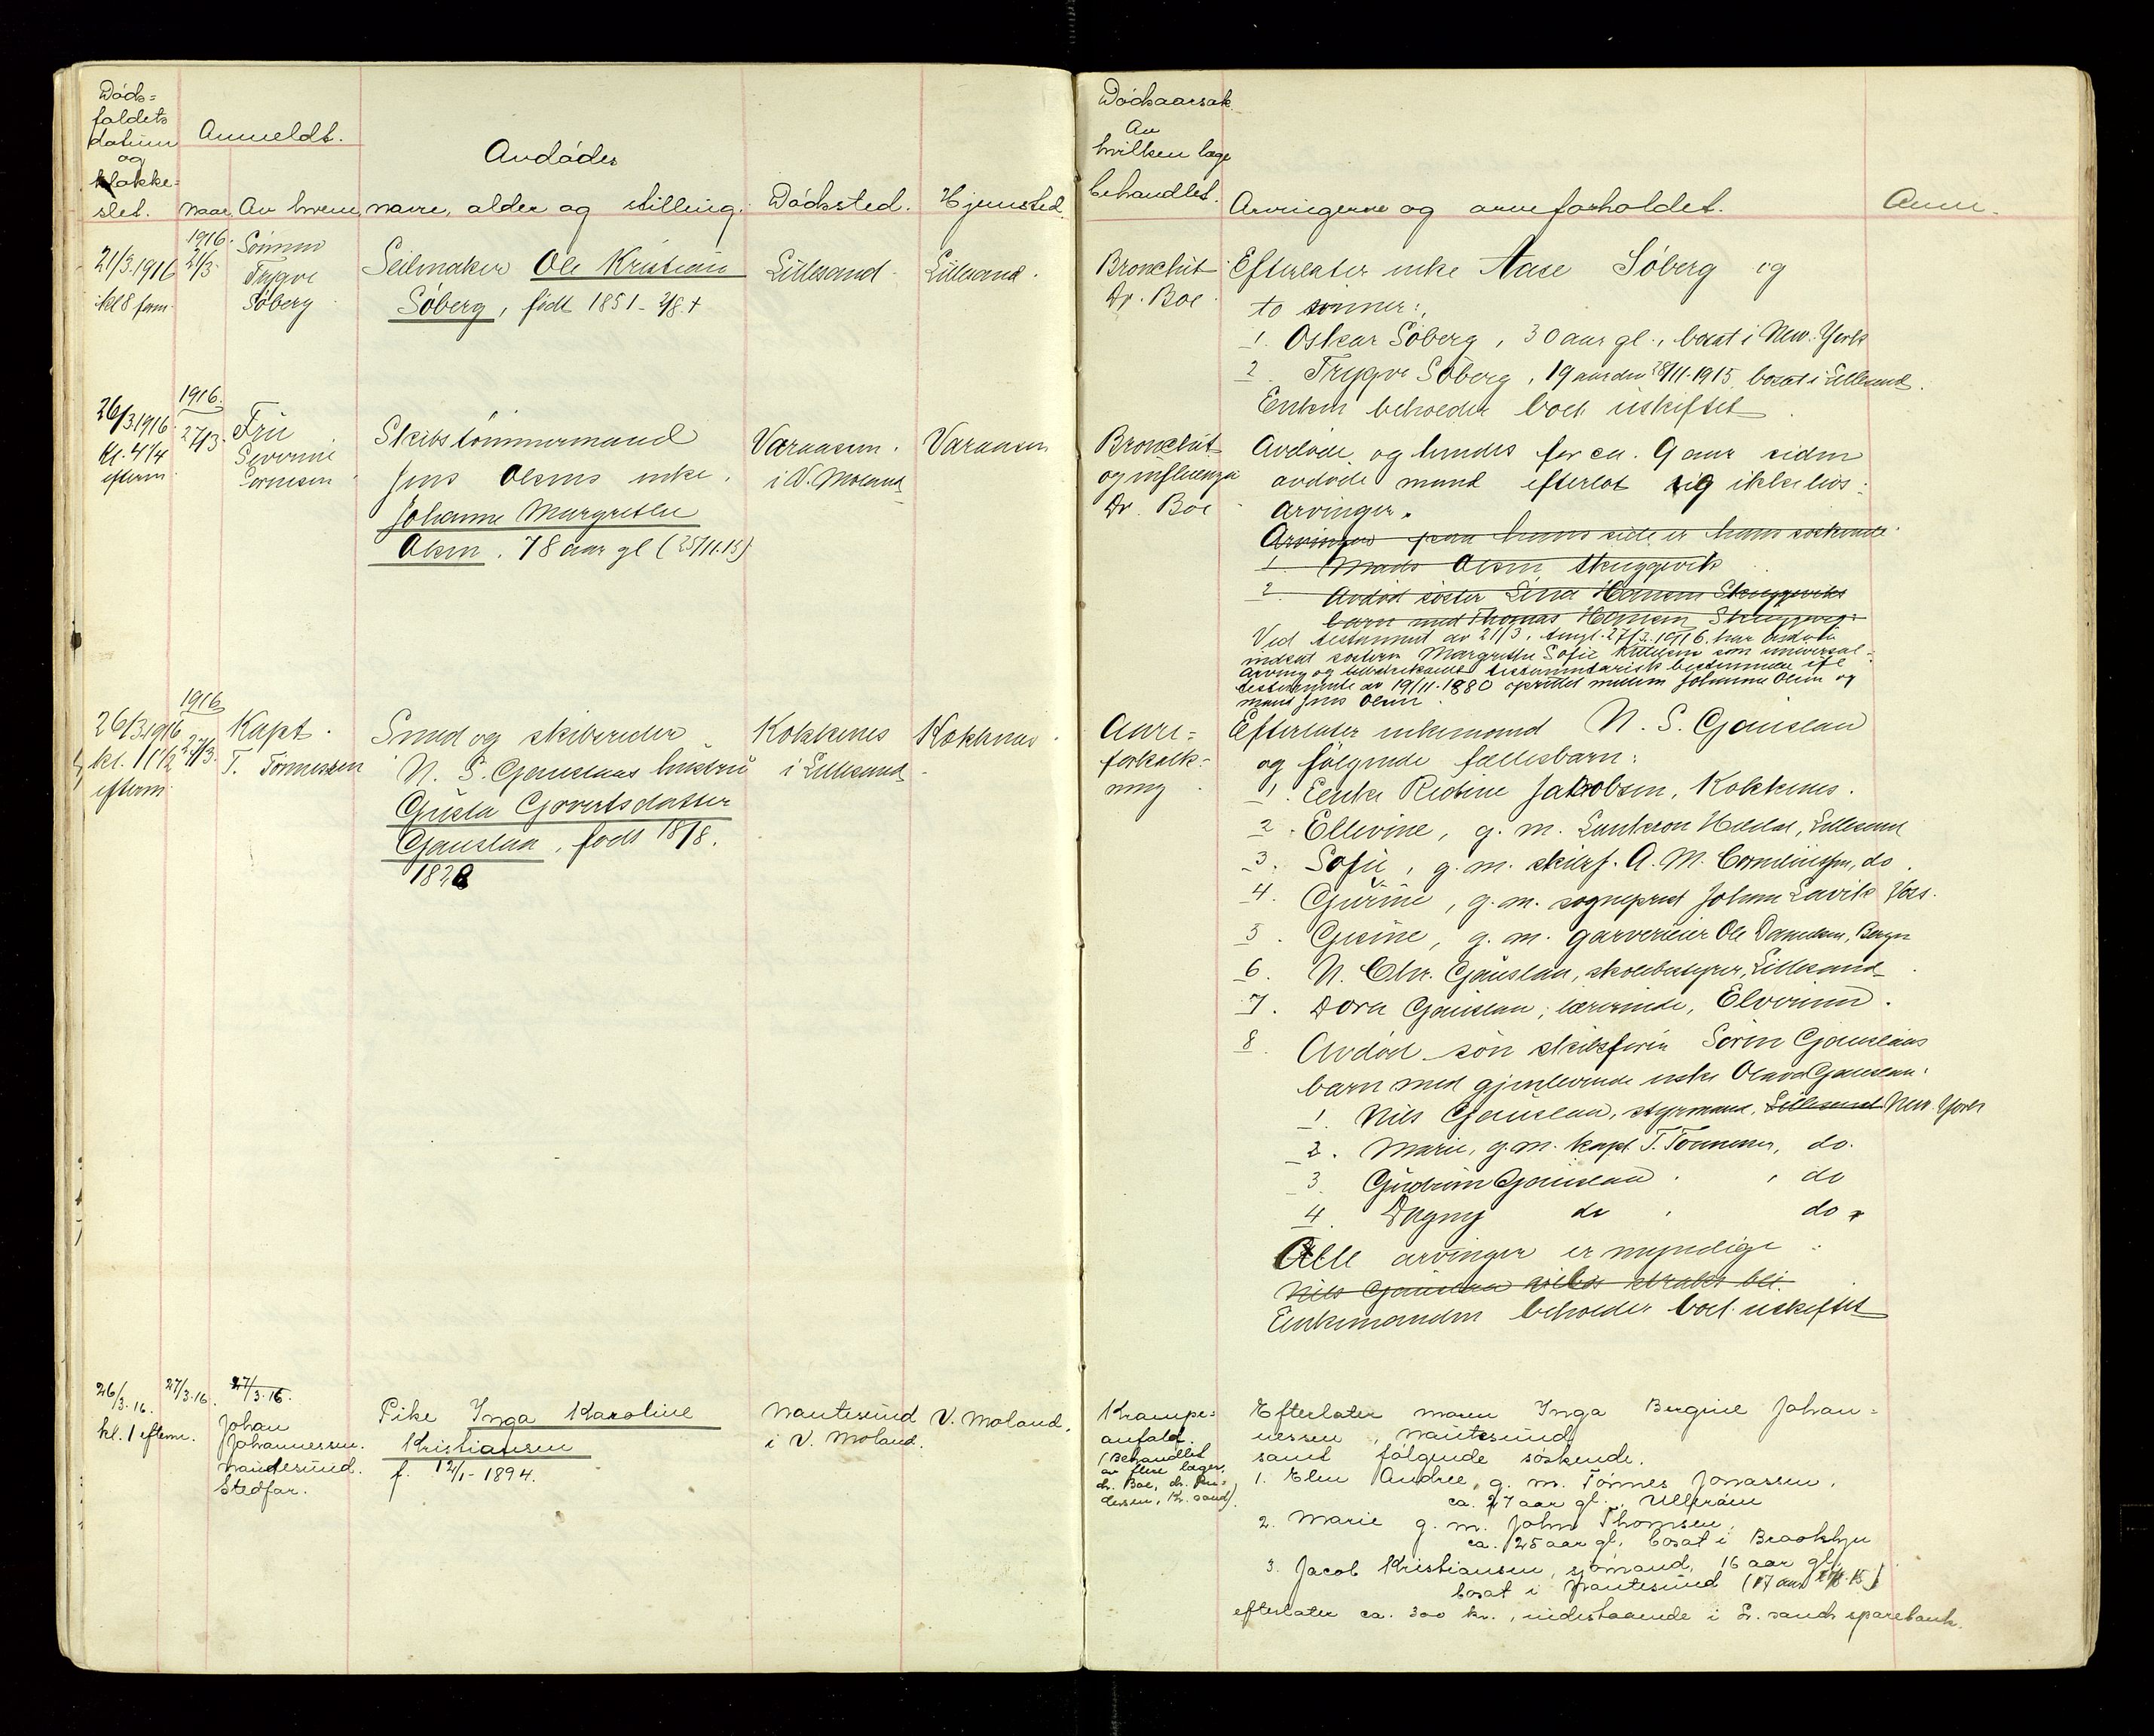 Døds=
faldets
datum
og
klokke=
slet.
Anmeldt.
naar
Av hvem
Avdødes
navn, alder og stilling.
Dødssted.
Hjemsted.
Dødsaarsak
Av
hvilken læge
behandlet.
Arvingerne og arveforholdet.
Anm.
21/3.1916
kl 8 fm.
1916.
21/3
Sønnen
Trygve
Søberg
Seilmaker Ole Kristian
Søberg, født 1851 - 2/8. +
Lillesand.
Lillesand.
Bronchit
Dr. Boe.
Efterlater enke Aase Søberg og
to sønner:
1. Oskar Søberg, 30 aar gl., bosat i New-York
2. Trygve Søberg, 19 aar den 28/11-1915, bosat i Lillesand.
Enken beholder boet uskiftet.
26/3.1916
kl. 4 1/4
efterm.
1916.
27/3.
Fru
Severine
Skibstømmermand
Jens Olsens enke,
Johanne Margrethe
Olsen, 78 aar gl (25/11.15)
Varaasen.
i V. Moland
Varaasen
Bronchit
og influenza
Dr. Boe
Avdøde og hendes for ca. 9 aar siden
avdøde mand efterlot sig ikke livs=
arvinger.
Arvinger paa hans side er hans søskende:
1. Mads Olsen Skuggevik
2. Avdød søster Lina Hansen Skuggeviks
barn med Thomas Hansen Skuggevig:
Ved testament av 21/3, tingl. 27/3.1916. har avdøde
indsat søsteren Margrethe Sofie som universal=
arving og testamentarisk bestemmelse ifl
testamente av 19/11-1880 oprettet mellem Johanne Olsen og
mand Jens Olsen.
26/3.1916
kl. 11 1/2
efterm.
1916
27/3.
Kapt.
T. Tønnessen
Smed og skibsreder
N. S. Gjauslaas hustru
Gusta Gjovertsdatter
Gjauslaa, født 1818.
1828
Kokkenes
i Lillesand
Kokkenes.
Aare=
forkalk=
ning.
Efterlater enkemand N. S. Gjauslaa
og følgende fællesbarn:
1. Enke Redine Jakobsen, Kokkenes.
2. Ellevine, g. m. Lillesand
3. Sofie, g. m. skibsf. A. M. do.
4. Gurine, g. m. sogneprest Johan Lavik Voss.
5. Gusine, g. m. garverieier Ole Danielsen, Bergen
6. N. Chr. Gjauslaa, skolebestyrer, Lillesand.
7. Dora Gjauslaa, lærerinde, Elverum.
8. Avdød søn skibsfører Søren Gjauslaas
barn med gjenlevende enke Olava Gjauslaa:
1. Nils Gjauslaa, styrmand, Lillesand New-York
2. Marie, g. m. kapt T. Tønnessen, do.
3. Gudrun Gjauslaa, do
4. Dagny do, do.
Alle arvinger er myndige.
Nils Gjauslaa reiser straks bei.
Enkemanden beholder boet uskiftet
26/3.16.
kl. 1 efterm.
27/3.16.
27/3.16.
Johan
Johannessen.
Nautesund.
Stedfar.
Pike Inga Karoline
Kristiansen
f. 12/1-1894.
Nautesund
i V. Moland.
V. Moland.
Krampe=
anfald.
(Behandlet
av flere læger,
dr. Boe, dr. Kn=
dersen, Kr. sand).
Efterlater moren Inga Bergine Johan=
nessen, Nautesund
samt følgende søskende.
1. Elen Andree, g. m. Tønnes Jonassen,
ca. 27 aar gl., Ulleraen
2. Marie g. m. John Thomsen,
ca. 25 aar gl, bosat i Brooklyn
3. Jacob Kristiansen, sjømand, 16 aar gl,
bosat i Nautesund (17 aar
efterlater ca. 300 kr., indestaaende i L. sands sparebank.